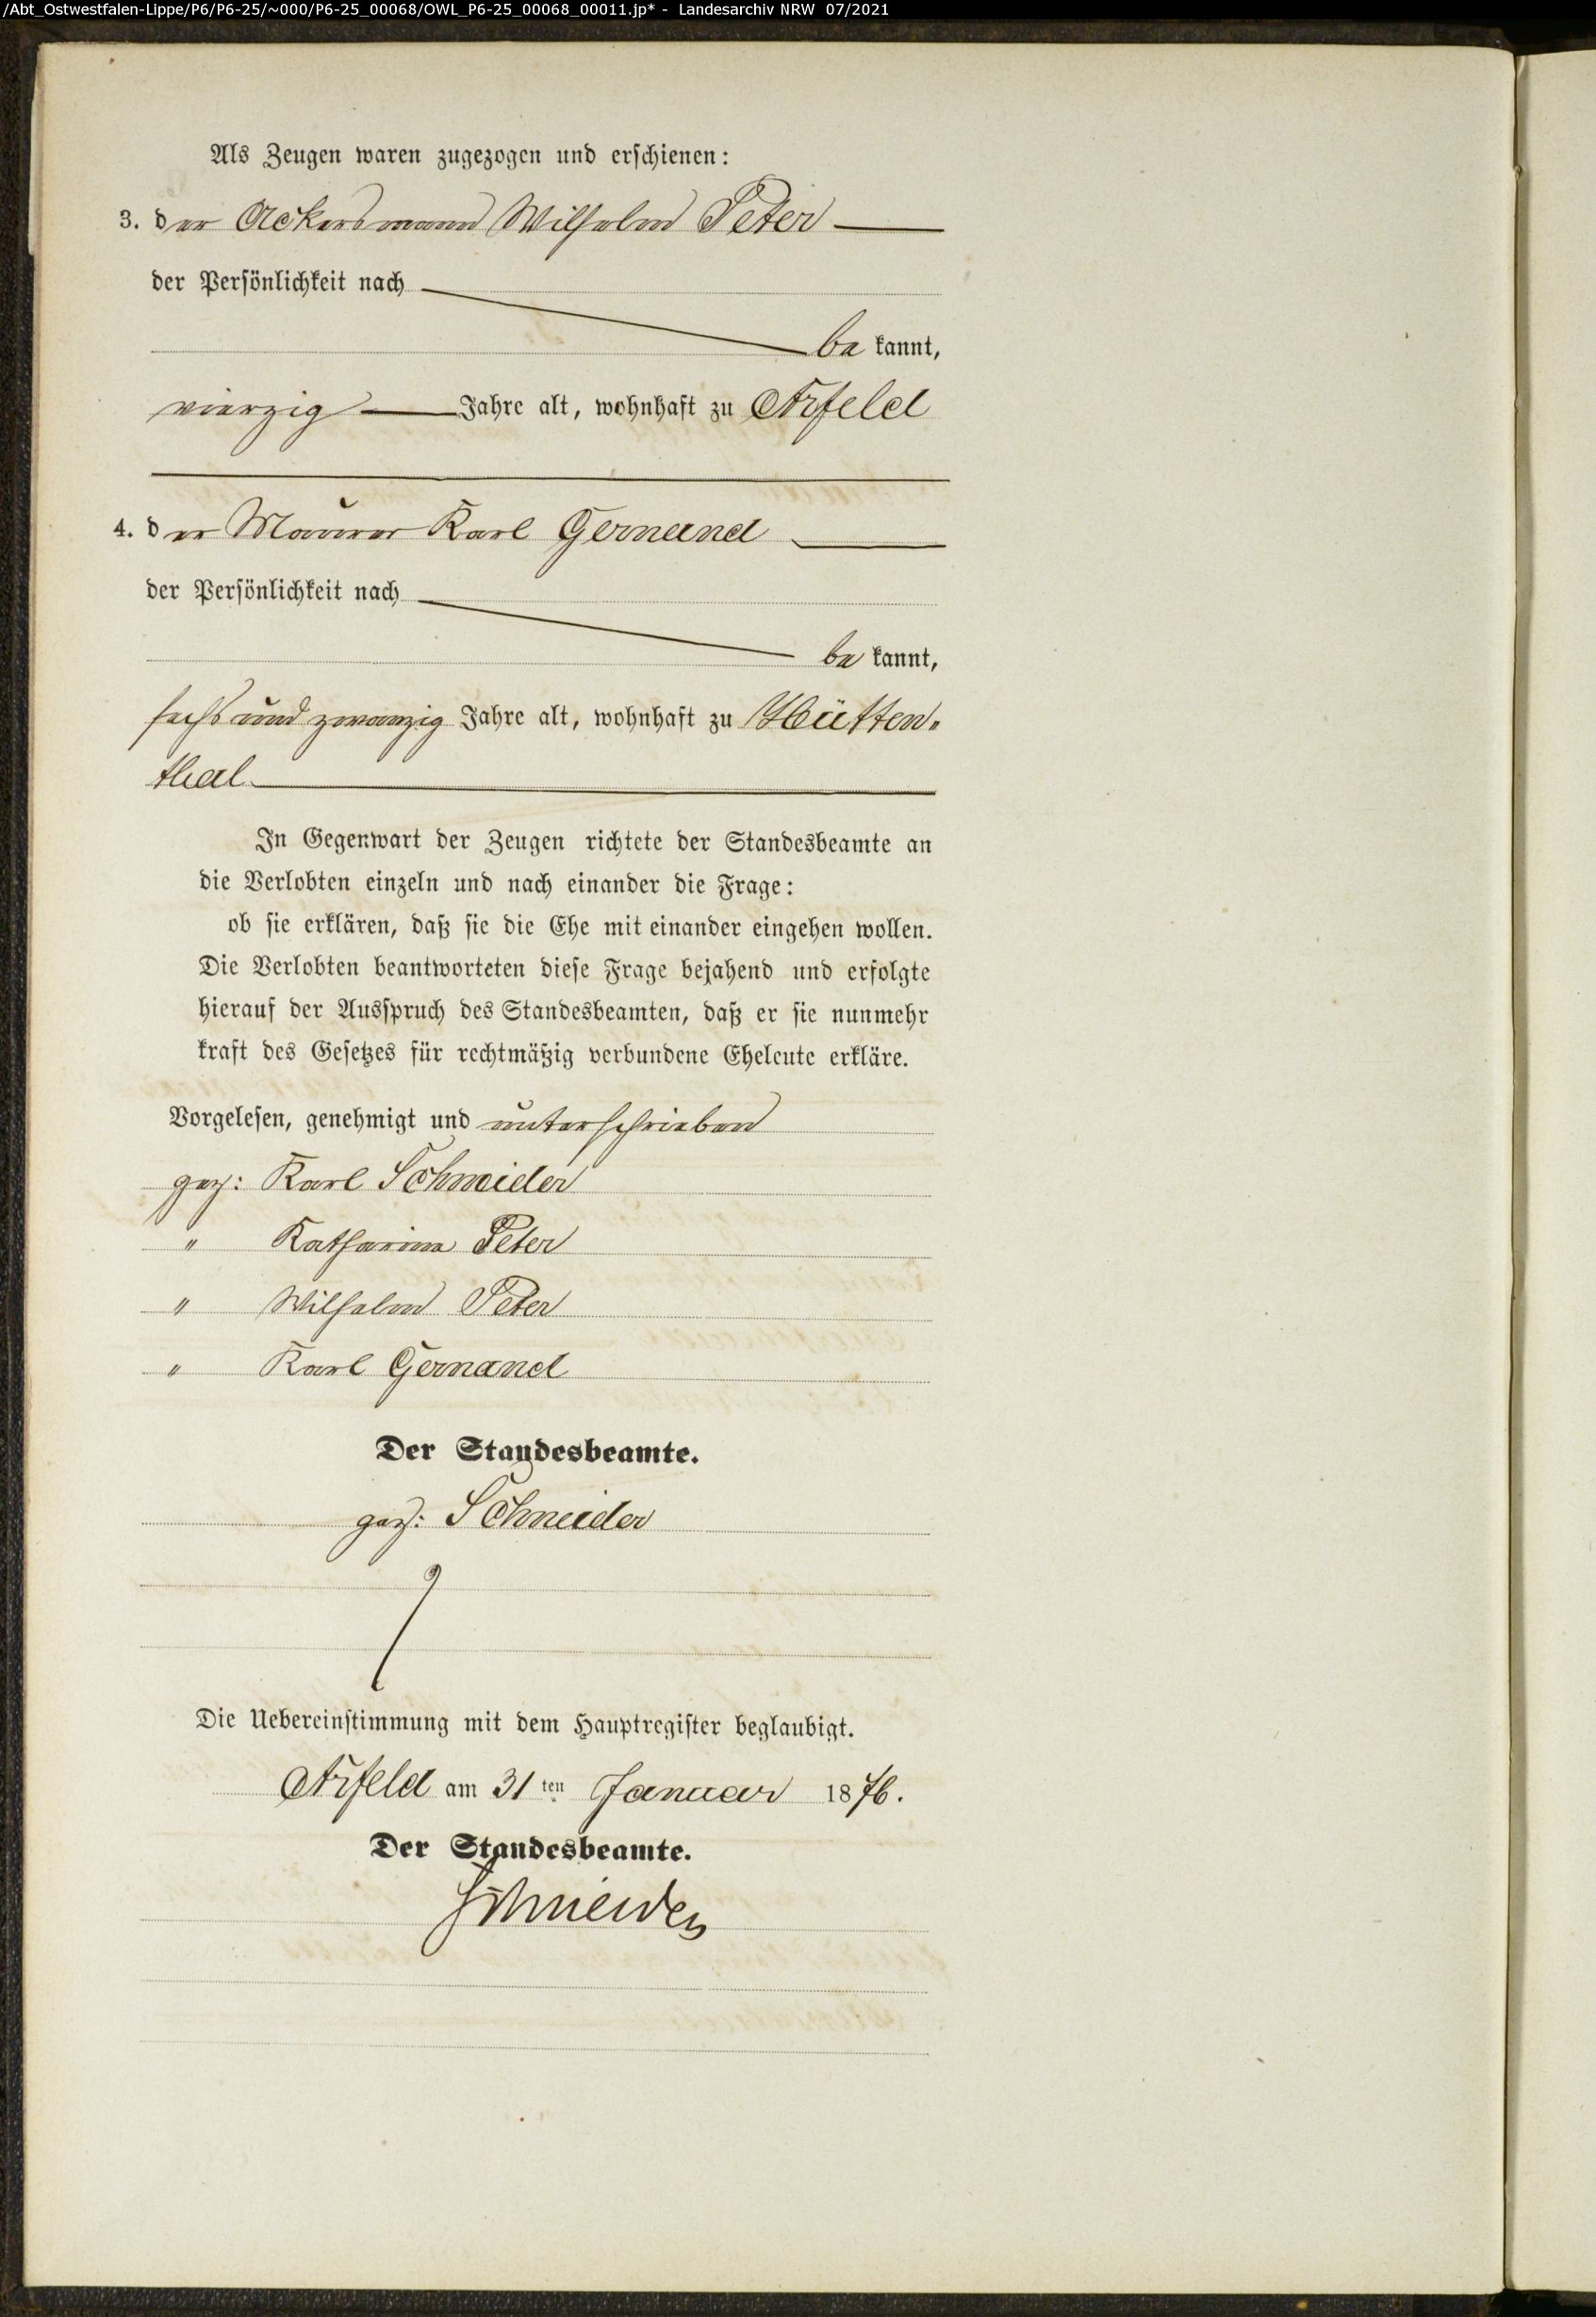 /Abt_Ostwestfalen-Lippe/P6/P6-25/~000/P6-25_00068/OWL_P6-25_00068_00011.jp* - Landesarchiv NRW 07/2021
Als Zeugen waren zugezogen und erschienen:
3. der Ackersmann Wilhelm Peter
der Persönlichkeit nach
bekannt,
vierzig Jahre alt, wohnhaft zu Arfeld
4. der Maurer Karl Gernand
der Persönlichkeit nach
bekannt,
sechs und zwanzig Jahre alt, wohnhaft zu Hütten„
thal
In Gegenwart der Zeugen richtete der Standesbeamte an
die Verlobten einzeln und nach einander die Frage:
ob sie erklären, daß sie die Ehe mit einander eingehen wollen.
Die Verlobten beantworteten diese Frage bejahend und erfolgte
hierauf der Ausspruch des Standesbeamten, daß er sie nunmehr
kraft des Gesetzes für rechtmäßig verbundene Eheleute erkläre.
Vorgelesen, genehmigt und unterschrieben
gez: Karl Schneider
" Katharina Peter
" Wilhelm Peter
" Karl Gernand
Der Standesbeamte.
gez: Schneider
Die Uebereinstimmung mit dem Hauptregister beglaubigt.
Arfeld am 31ten Januar 1876.
Der Standesbeamte.
Schneider